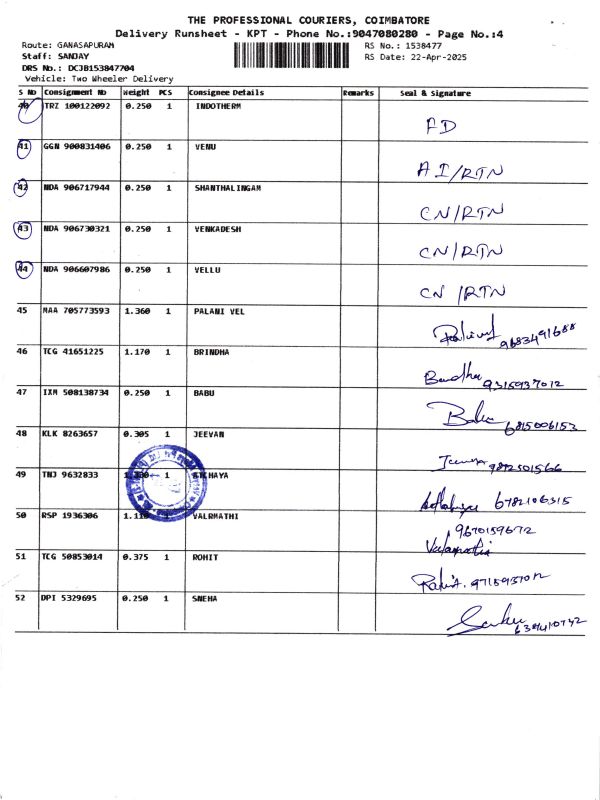 THE PROFESSIONAL COURIERS, COIMBATORE
Delivery Runsheet - KPT - Phone No.:9047080280 - Page No.:4
Route: GANASAPURAM RS No.: 1538477
Staff: SANJAY RS Date: 22-Apr-2025
DRS No.: DCJB153847704
Vehicle: Two Wheeler Delivery
S No Consignment No Weight PCS Consignee Details Remarks Seal & Signature
40 TRZ 100122092 0.250 1 INDOTHERM
FD
41 GGN 900831406 0.250 1 VENU
AI/RTN
42 NDA 906717944 0.250 1 SHANTHALINGAM
CN/RTN
43 NDA 906730321 0.250 1 VENKADESH
CN/RTN
44 NDA 906607986 0.250 1 VELLU
CN/RTN
45 MAA 705773593 1.360 1 PALANI VEL
9683491688
46 TCG 41651225 1.170 1 BRINDHA
9315937012
47 IXM 508138734 0.250 1 BABU
Babu 6815006153
48 KLK 8263657 0.305 1 JEEVAN
9842501566
49 TNJ 9632833
6782106315
50 RSP 1936306 VALRMATHI
9670159672
51 TCG 50853014 0.375 1 ROHIT
9715937012
52 DPI 5329695 0.250 1 SNEHA